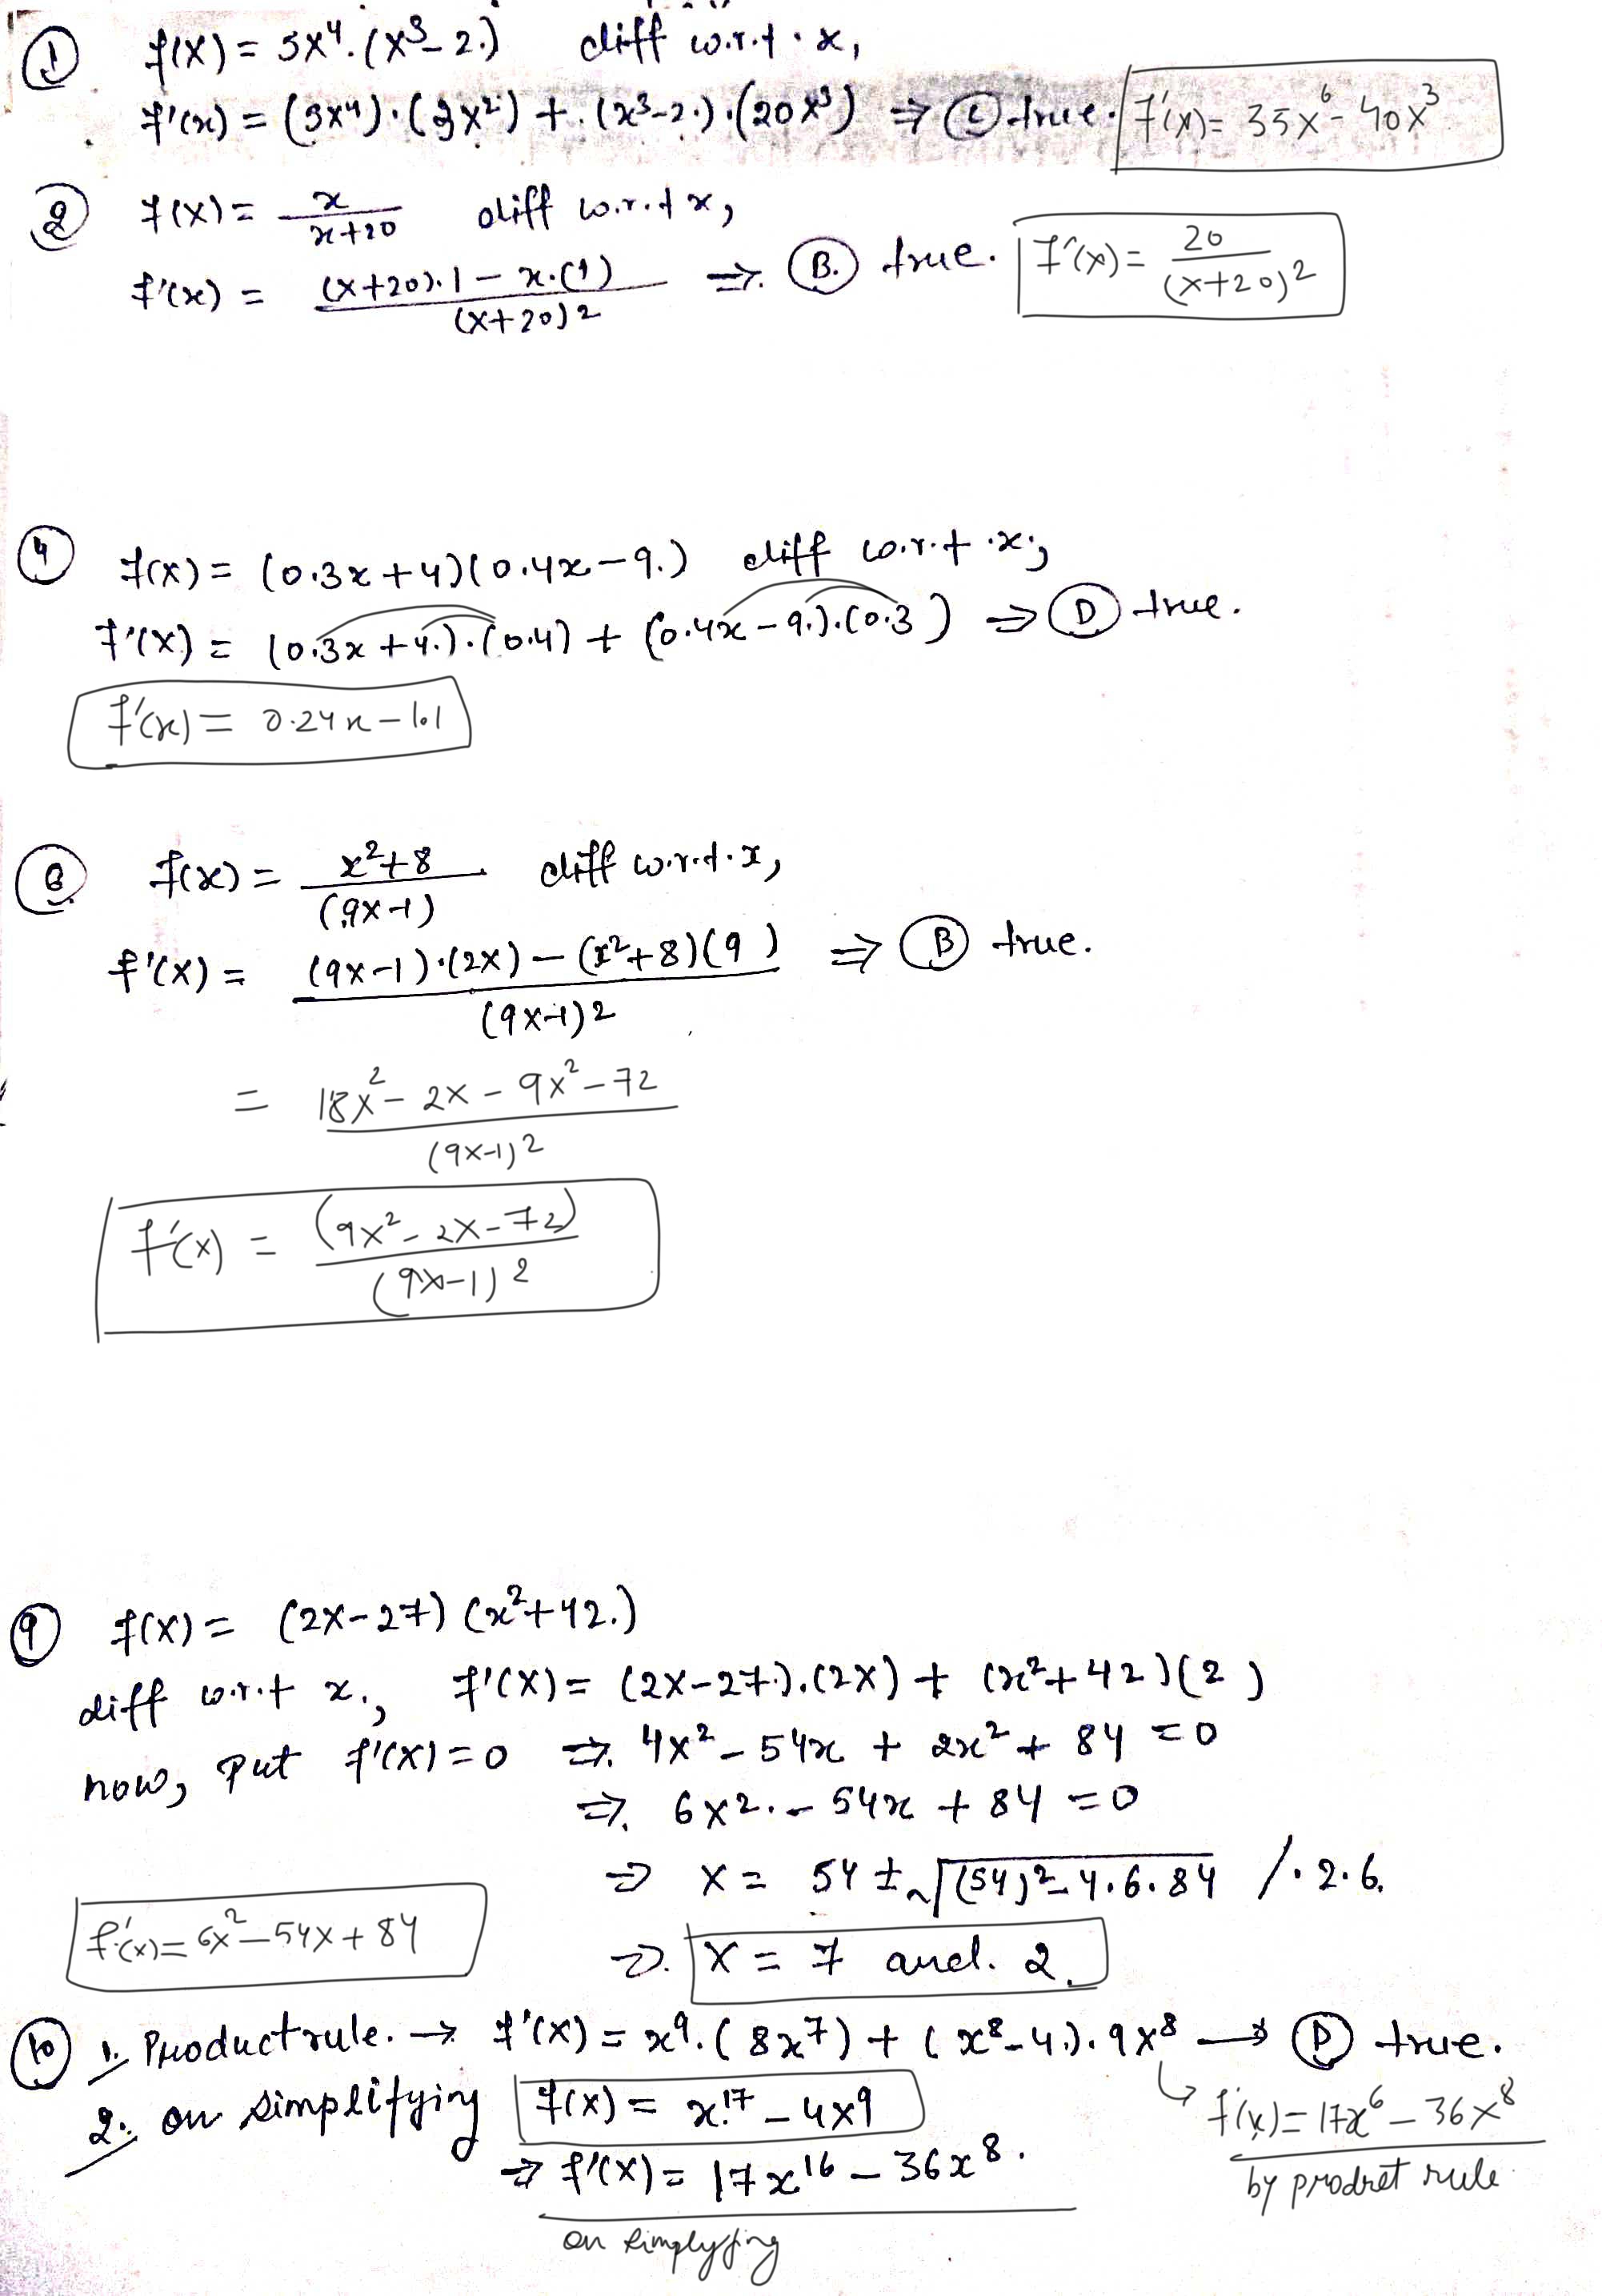 ① f(x) = 5x⁴.(x³-2.) diff w.r.t. x,
f'(x) = (5x⁴).(3x²) + (x³-2.).(20x³) ⇒ Ⓒ true. f'(x) = 35x⁶ - 40x³
② f(x) = x/(x+20) diff w.r.t x,
f'(x) = ((x+20).1 - x.(1))/(x+20)2 ⇒ Ⓑ. true. f'(x) = 20/(x+20)2
④ f(x) = (0.3x+4)(0.4x-9.) diff w.r.t.x.,
f'(x) = (0.3x+4.).(0.4) + (0.4x-9.).(0.3) ⇒ Ⓓ true.
f'(x) = 0.24x - 1.1
f(x) = (x²+8)/(9x-1) diff w.r.t.x,
f'(x) = ((9x-1).(2x) - (x²+8)(9))/(9x-1)2 ⇒ Ⓑ true.
= (18x² - 2x - 9x² - 72)/(9x-1)2
f'(x) = (9x² - 2x - 72)/(9x-1)2
⑨ f(x) = (2x-27)(x²+42.)
diff w.r.t x., f'(x) = (2x-27.).(2x) + (x²+42)(2)
now, put f'(x)=0 ⇒ 4x² - 54x + 2x² + 84 = 0
⇒ 6x2. - 54x + 84 = 0
⇒ x = 54 ± √((54)2 - 4.6.84) /. 2.6.
f'(x) = 6x² - 54x + 84
⇒. x = 7 and. 2.
⑩ 1. Product rule. → f'(x) = x⁹.(8x⁷) + (x⁸-4.).9x⁸ → Ⓓ true.
2. on simplifying f(x) = x¹⁷ - 4x⁹
↳ f'(x) = 17x⁶ - 36x⁸
by prodret rule.
⇒ f'(x) = 17x¹⁶ - 36x⁸.
on simplyfing